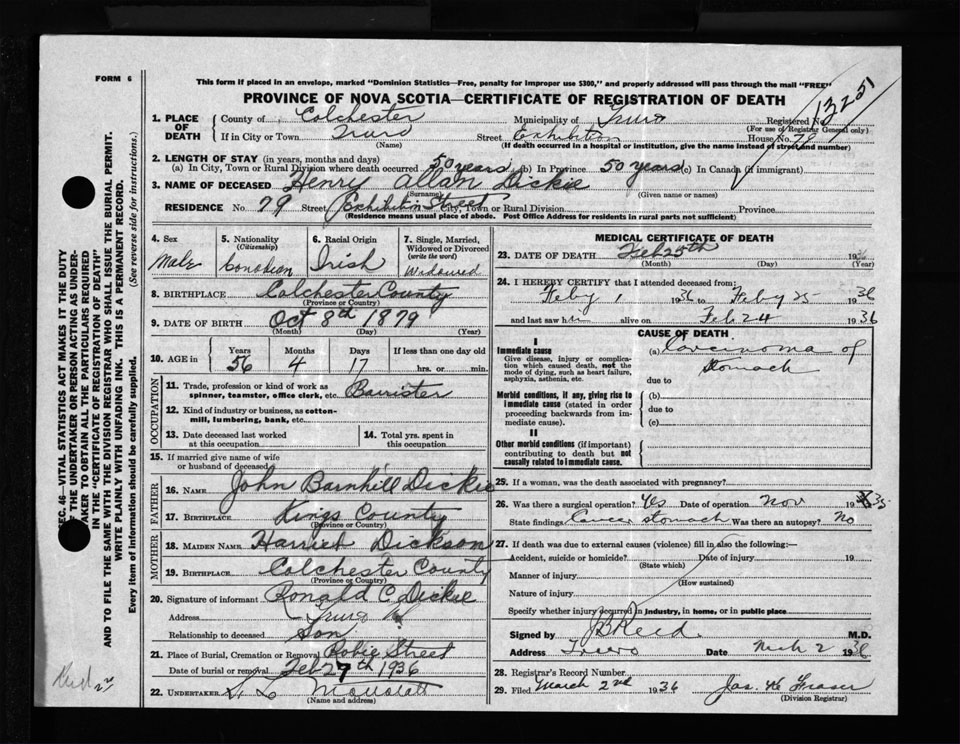 FORM 6
This form if placed in an envelope, marked "Dominion Statistics—Free, penalty for improper use $300," and properly addressed will pass through the mail "FREE"
PROVINCE OF NOVA SCOTIA—CERTIFICATE OF REGISTRATION OF DEATH
13251
1. PLACE OF DEATH
County of Colchester Municipality of Truro Registered No.
(For use of Registrar General only)
If in City or Town Truro Street Exhibition House No. 79
(Name) (If death occurred in a hospital or institution, give the name instead of street and number)
2. LENGTH OF STAY (in years, months and days)
(a) In City, Town or Rural Division where death occurred 50 years (b) In Province 50 years (c) In Canada (if immigrant)
3. NAME OF DECEASED Henry Allan Dickie
(Surname) (Given name or names)
RESIDENCE No. 79 Street Exhibition Street City, Town or Rural Division Province
(Residence means usual place of abode. Post Office Address for residents in rural parts not sufficient)
4. Sex Male
5. Nationality (Citizenship) Canadian
6. Racial Origin Irish
7. Single, Married, Widowed or Divorced (write the word) Widowed
8. BIRTHPLACE Colchester County
(Province or Country)
9. DATE OF BIRTH Oct 8th 1879
(Month) (Day) (Year)
10. AGE in Years Months Days If less than one day old
56 4 17 hrs. or min.
OCCUPATION
11. Trade, profession or kind of work as spinner, teamster, office clerk, etc. Barrister
12. Kind of industry or business, as cotton-mill, lumbering, bank, etc.
13. Date deceased last worked at this occupation
14. Total yrs. spent in this occupation
15. If married give name of wife or husband of deceased
FATHER
16. NAME John Barnhill Dickie
17. BIRTHPLACE Kings County
(Province or Country)
MOTHER
18. MAIDEN NAME Harriet Dickson
19. BIRTHPLACE Colchester County
(Province or Country)
20. Signature of informant Ronald C. Dickie
Address Truro
Relationship to deceased Son
21. Place of Burial, Cremation or Removal Robie Street
Date of burial or removal Feb 27th 1936
22. UNDERTAKER
(Name and address)
MEDICAL CERTIFICATE OF DEATH
23. DATE OF DEATH Feb 25th 19
(Month) (Day) (Year)
24. I HEREBY CERTIFY that I attended deceased from:
Feby 1 1936 to Feby 25 1936
and last saw him alive on Feb 24 1936
CAUSE OF DEATH
I
Immediate cause
Give disease, injury or complication which caused death, not the mode of dying, such as heart failure, asphyxia, asthenia, etc.
(a) Carcinoma of stomach
due to
Morbid conditions, if any, giving rise to immediate cause (stated in order proceeding backwards from immediate cause).
(b)
due to
(c)
II
Other morbid conditions (if important) contributing to death but not causally related to immediate cause.
25. If a woman, was the death associated with pregnancy?
26. Was there a surgical operation? Yes Date of operation Nov 1935
State findings Cancer stomach Was there an autopsy? No
27. If death was due to external causes (violence) fill in also the following:—
Accident, suicide or homicide? Date of injury 19
(State which)
Manner of injury
(How sustained)
Nature of injury
Specify whether injury occurred in industry, in home, or in public place
Signed by J B Reid M.D.
Address Truro Date Mch 2 1936
28. Registrar's Record Number
29. Filed March 2nd 1936 Jas. H. Fraser
(Division Registrar)
SEC. 46—VITAL STATISTICS ACT MAKES IT THE DUTY
OF THE UNDERTAKER OR PERSON ACTING AS UNDER-
TAKER TO OBTAIN ALL THE PARTICULARS REQUIRED
IN THE "CERTIFICATE OF REGISTRATION OF DEATH"
AND TO FILE THE SAME WITH THE DIVISION REGISTRAR WHO SHALL ISSUE THE BURIAL PERMIT.
WRITE PLAINLY WITH UNFADING INK. THIS IS A PERMANENT RECORD.
Every item of information should be carefully supplied. (See reverse side for instructions.)